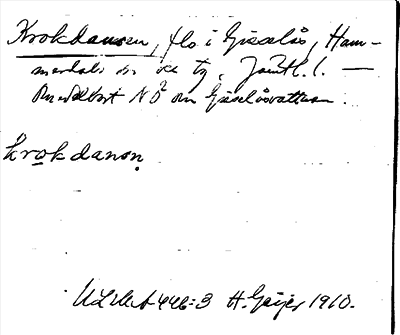 Krokdanson, flo i Gisselås, Ham-
merdals sn o. tg, Jämtl. l. —
Omedelbart NO om Gisselåsvattnen.
krokdanon.
ULMA 446:3 H. Geijer 1910.